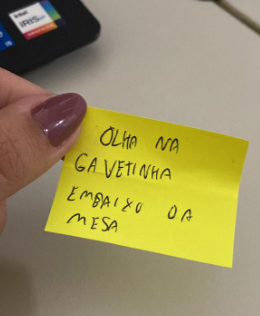 intel
iRIS xe
OLHA NA
GAVETINHA
EMBAIXO DA
MESA